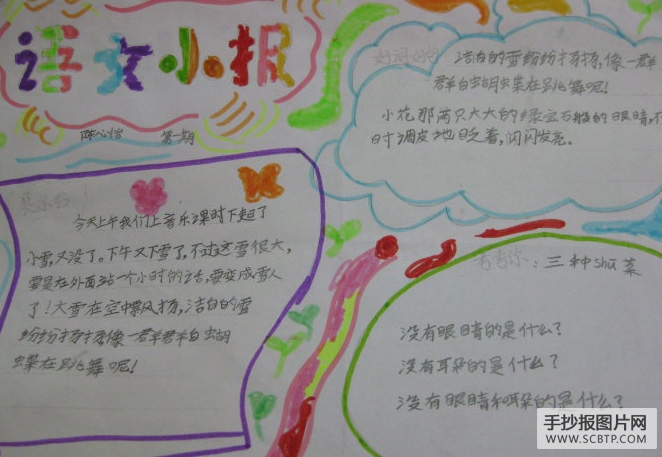 语文小报
陈心怡 第一期
好词好句
洁白的雪纷纷扬扬,像一群
群白蝴蝶在跳舞呢!
小花那两只大大的绿宝石般的眼睛,不
时调皮地眨着,闪闪发亮。
今天上午我们上音乐课时下起了
小雪,又没了。下午又下雪了,不过这雪很大,
要是在外面站一个小时的话,要变成雪人
了!大雪在空中飘扬,洁白的雪
纷纷扬扬,像一群群白蝴
蝶在跳舞呢!
考考你:三种shū菜
没有眼睛的是什么?
没有耳朵的是什么?
没有眼睛和耳朵的是什么?
手抄报图片网
WWW.SCBTP.COM